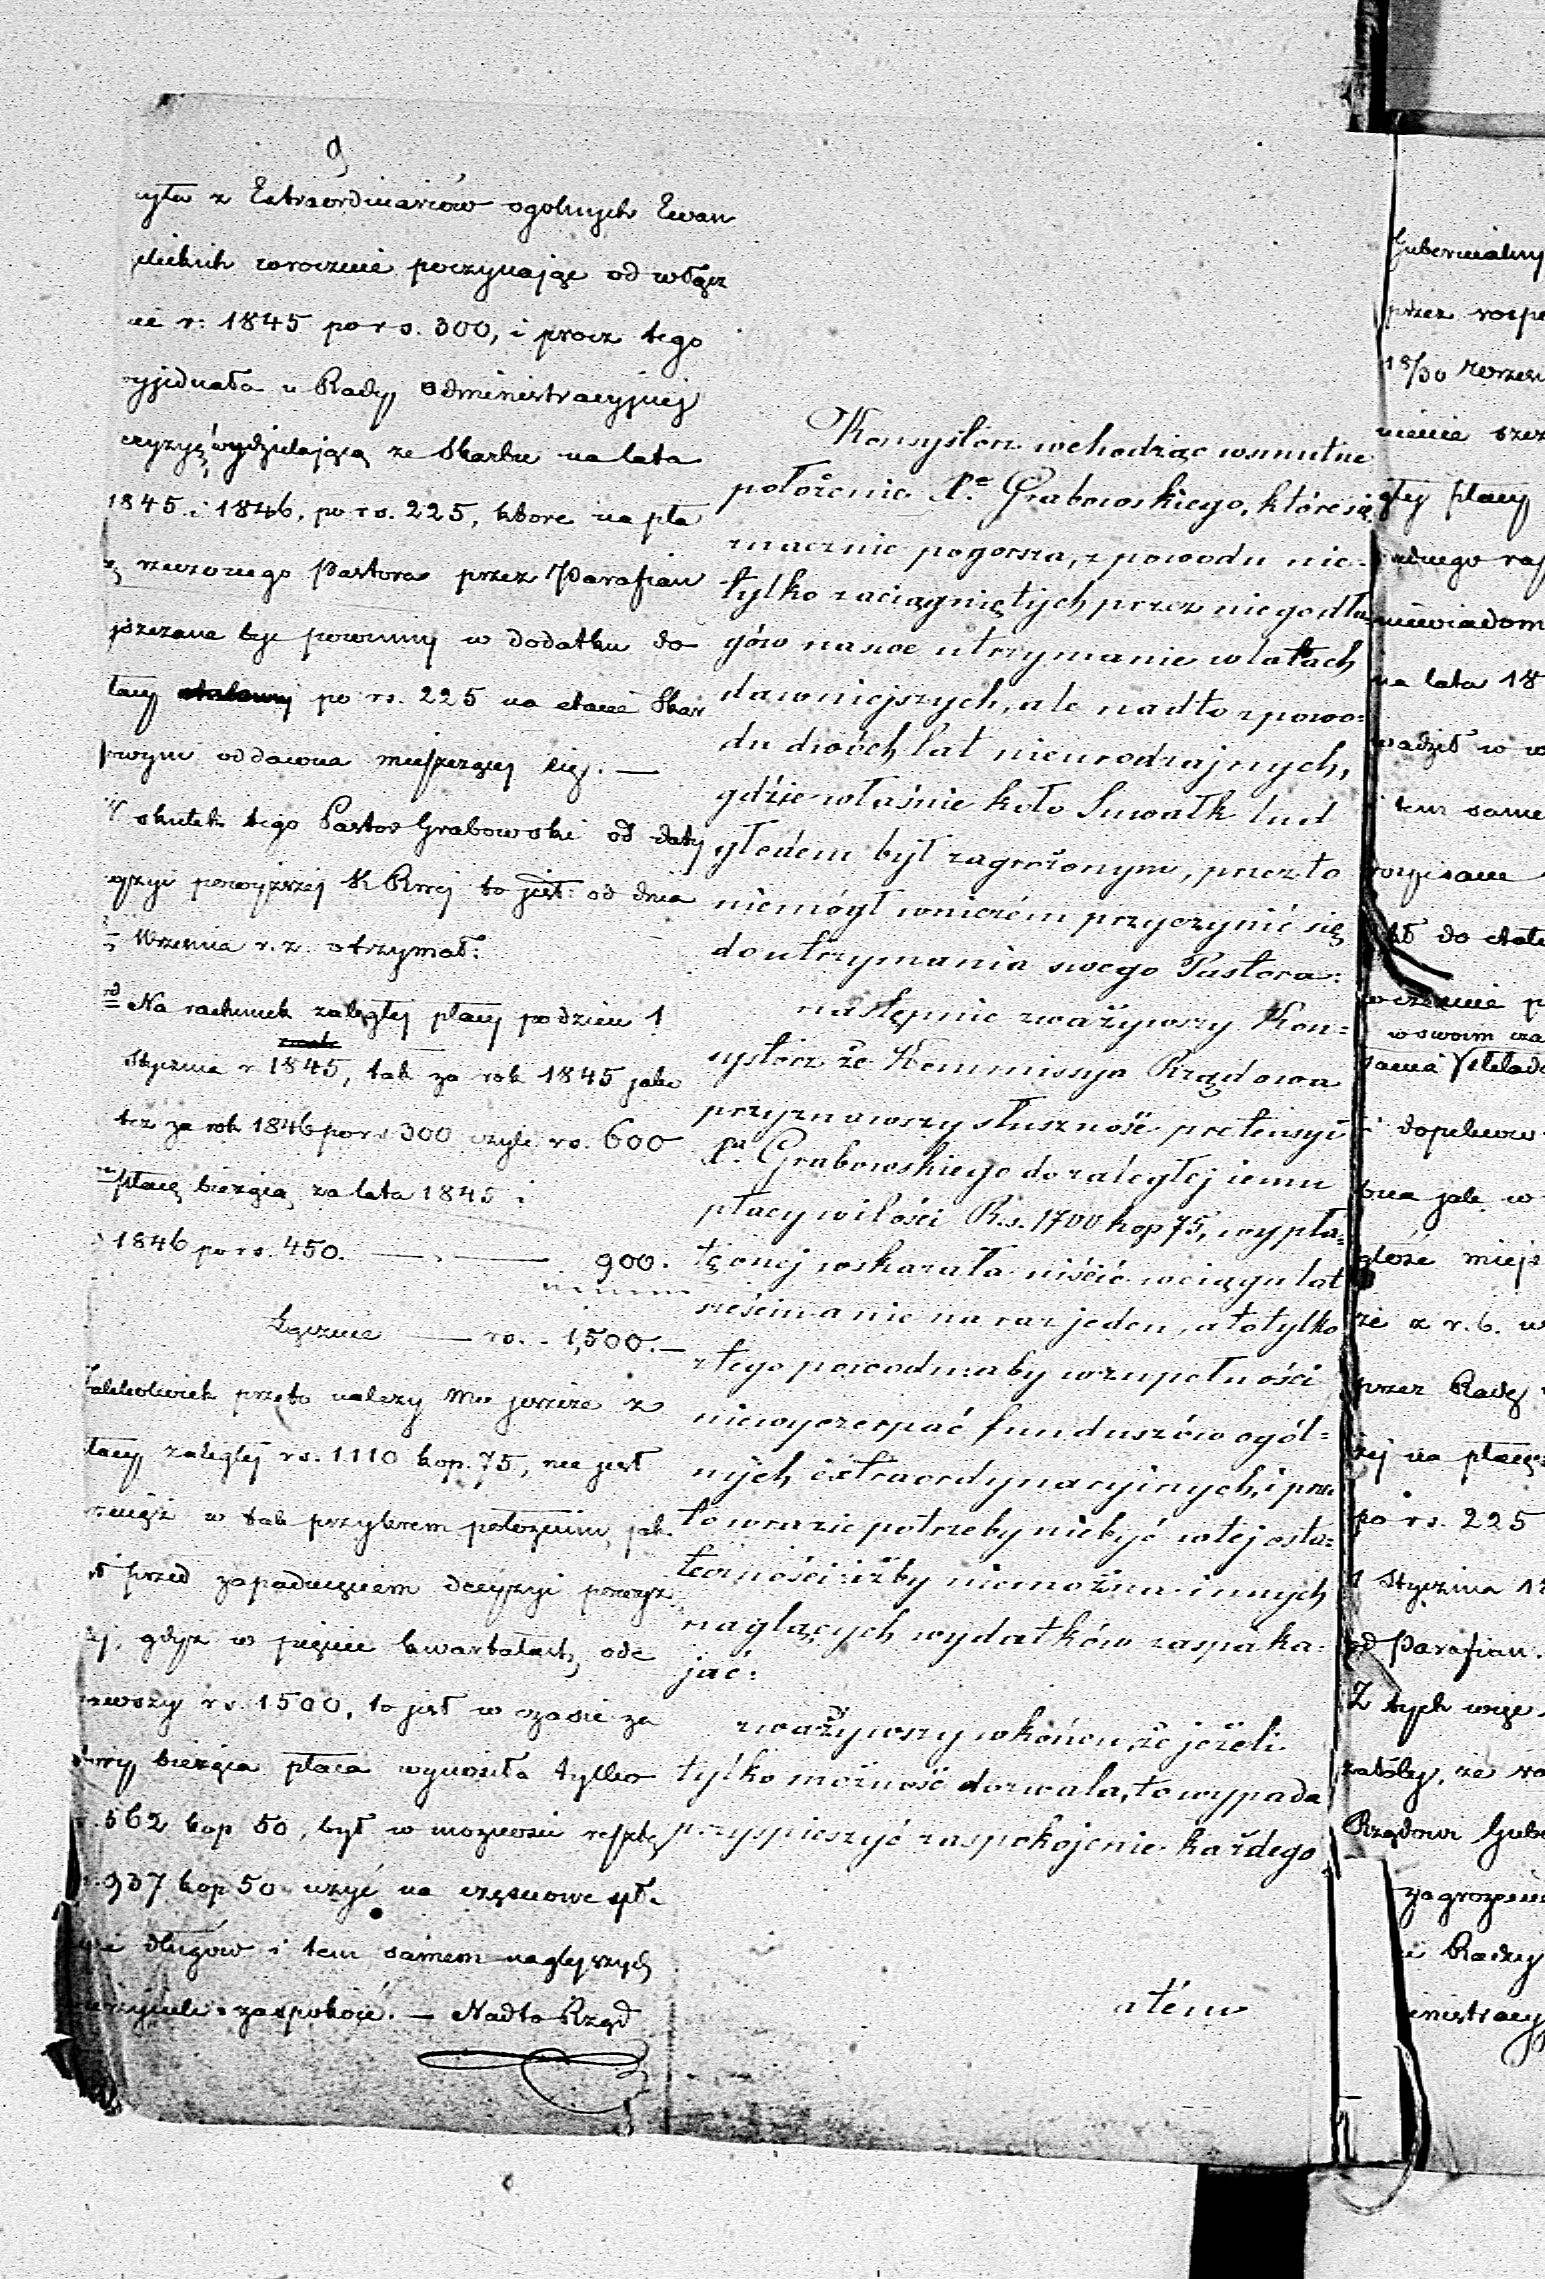 9
cyła z Extraordinariów ogolnych Ewan
gielickich corocznie poczynając od włącz
nie r: 1845 po rs. 300, i procz tego
wyjednała u Rady Administracyjnej
decyzyę wydzielającą ze Skarbu na lata
1845 i 1846, po rs. 225, ktore na pła
cę rzeczonego Pastora przez Parafian
uiszczane być powinny w dodatku do
płacy etatowej po rs. 225 na etacie Skar
bowym oddawna mieszczącej się. —
W skutek tego Pastor Grabowski od daty
decyzyi powyższej K R to jest: od dnia
Września r. z. otrzymał:
Na rachunek zaległej płacy po dzień 1
Stycznia r 1845, tak za rok 1845 jako
tez za rok 1846 po rs 300 czyli rs. 600
płacę bieżącą za lata 1845 i
1846 po rs. 450. — 900.
Łącznie — rs. 1,500.—
Jakkolwiek przeto należy Mu jeszcze z
płacy zaległej rs. 1110 kop. 75, nie jest
przecież w tak przykrem położeniu, jak
przed zapadnięciem decyzyi powyż
ej, gdyż w pięciu kwartałach, ode
brawszy rs. 1500, to jest w czasie za
który bieżąca płaca wynosiła tylko
rs. 562 kop 50, był w możności resztę
rs. 937 kop 50 użyć na częściowe spł
długów i tem samem naglejszych
wierzycieli zaspokoić. — Nadto Rząd
Konsystorz wchodząc w smutne
położenie Xa Grabowskiego, które się
znacznie pogorsza, z powodu nie-
tylko zaciągniętych przez niego dłu-
gów na swe utrzymanie w latach
dawniejszych, ale nadto z powo-
du dwóch lat nieurodzajnych,
gdzie właśnie koło Suwałk lud
głodem był zagrożonym, przez to
niemógł w niczém przyczynić się
do utrzymania swego Pastora:
następnie zważywszy Kon-
systorz że Kommissya Rządowa
przyznawszy słuszność pretensyi
Xa Grabowskiego do zaległej iemu
płacy w ilości R.s. 1700 kop 75, wypła-
tę onej wskazała uiścić w ciągu lat
sześciu a nie na raz jeden, a to tylko
z tego powodu: aby w zupełności
niewyczerpać funduszów ogól-
nych extraordynacyjnych, i prze
to w razie potrzeby niebyć w tej osta-
teczności: iżby niemożna innych
naglących wydatków zaspaka-
jać:
zważywszy wkońcu, że jeżeli
tylko możność dozwala, to wypada
przyspieszyć zaspokojenie każdego
atém
Gubernialny
przez rospo
18/30 Wrześn
nienie szcz
głej płacy
niewiadom
na lata 18
wadził w w
tem same
w swoim cza
po rs. 225
1 Stycznia 18
od Parafian.
Z tych więc
Rządowi Gube
zagrożeni